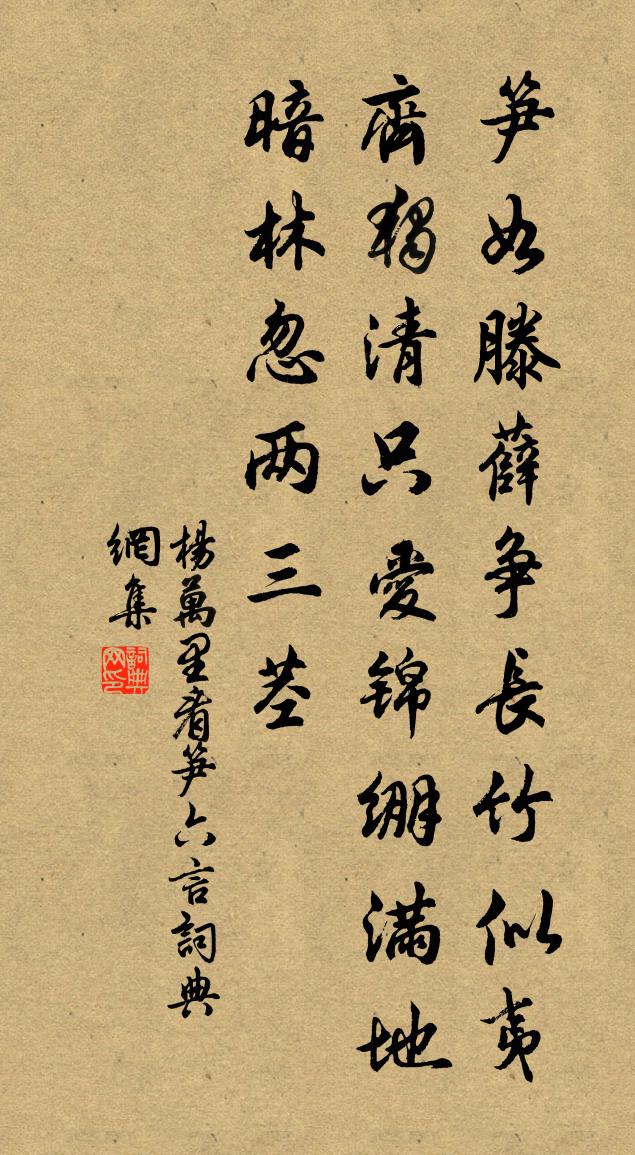 笋如滕薛争長竹似夷
齊獨清只愛錦绷滿地
暗林忽两三茎
楊萬里看笋六言詞典
網集
詞典
网印